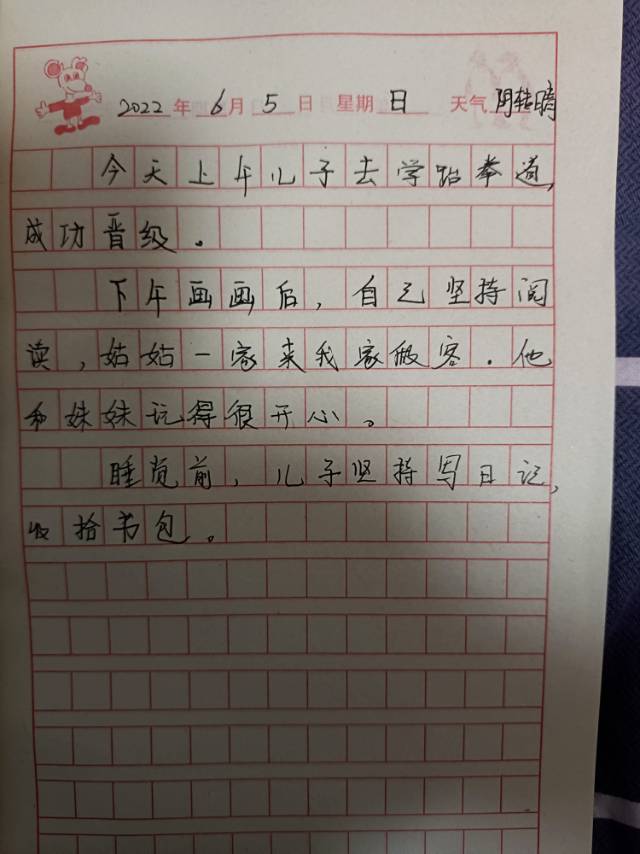 2022年6月5日 星期日 天气阴转晴
今天上午儿子去学跆拳道,
成功晋级。
下午画画后,自己坚持阅
读,姑姑一家来我家做客.他
和妹妹玩得很开心。
睡觉前,儿子坚持写日记,
收拾书包。